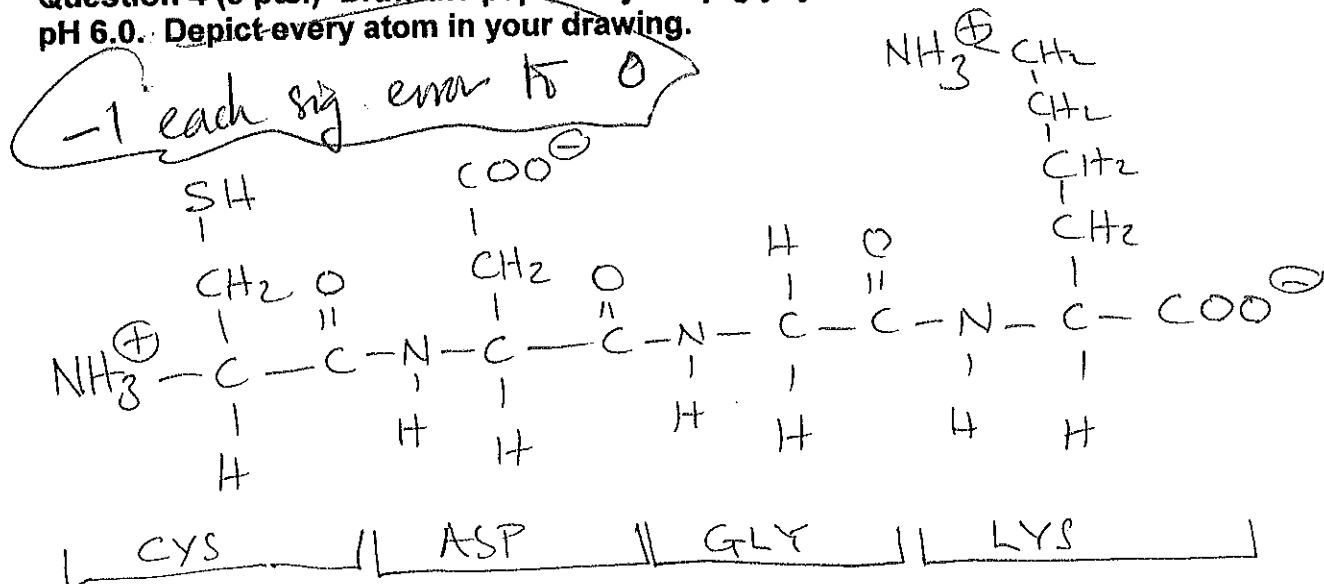 pH 6.0. Depict every atom in your drawing.
-1 each sig. error to 0
NH3⊕ CH2
CH2
CH2
CH2
SH
COO⊖
CH2 O
CH2 O
H O
NH3⊕ - C - C - N - C - C - N - C - C - N - C - COO⊖
H H H H H H H
CYS ASP GLY LYS